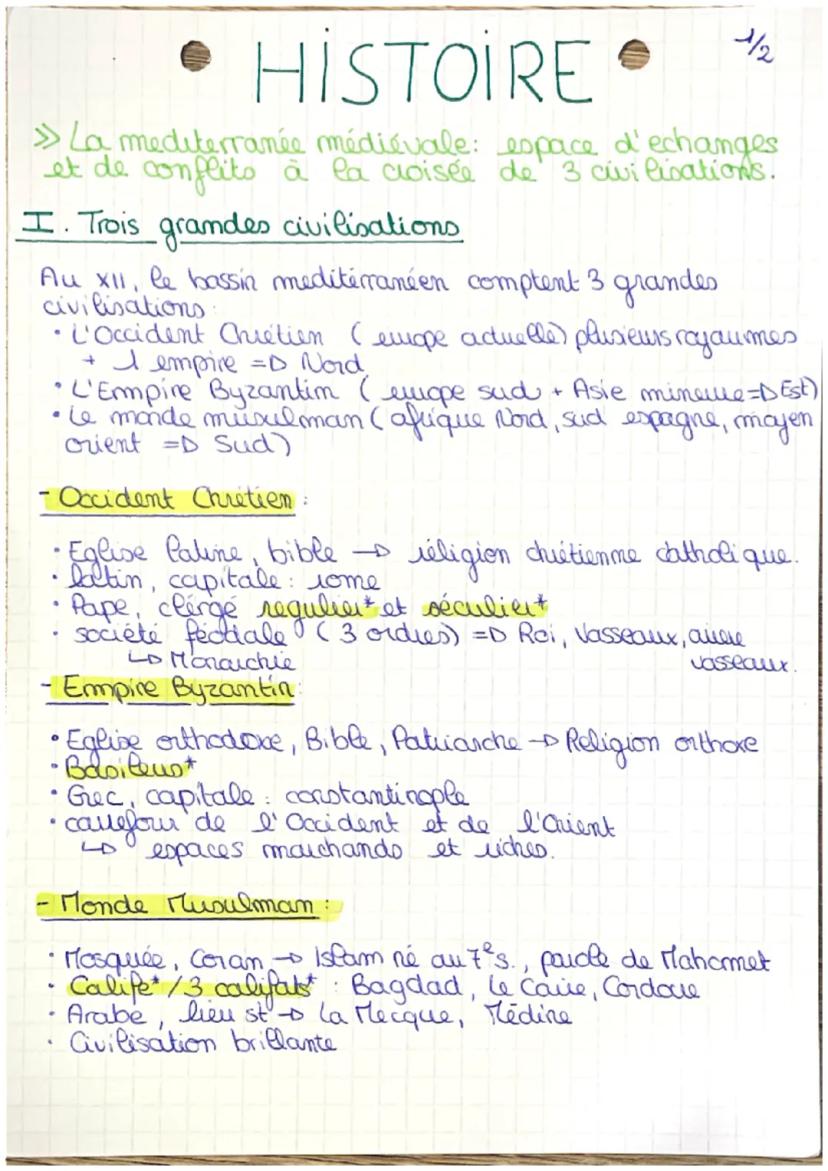 HISTOIRE
1/2
>> La mediterranée médiévale: espace d'echanges
et de conflits à la croisée de 3 civilisations.
I. Trois grandes civilisations
Au XII, le bassin mediterranéen comptent 3 grandes
civilisations:
• L'Occident Chrétien (europe actuelle) plusieurs royaumes
+ 1 empire => Nord
• L'Empire Byzantin (europe sud + Asie mineure => Est)
• Le monde musulman (afrique Nord, sud espagne, moyen
orient => Sud)
- Occident Chrétien:
• Eglise latine, bible → réligion chrétienne catholique.
• latin, capitale: rome
• Pape, clérgé regulier* et séculier*
• société féodale (3 ordres) => Roi, Vasseaux, arriere
vasseaux.
↳ Monarchie
- Empire Byzantin:
• Eglise orthodoxe, Bible, Patriarche → Religion orthoxe
• Basileus*
• Grec, capitale: constantinople
• carrefour de l'Occident et de l'Orient
↳ espaces marchands et riches.
- Monde Musulman:
• Mosquée, Coran → Islam né au 7es., parole de Mahomet
• Calife* / 3 califats*: Bagdad, Le Caire, Cordoue
• Arabe, lieu st → La Mecque, Médine
• Civilisation brillante